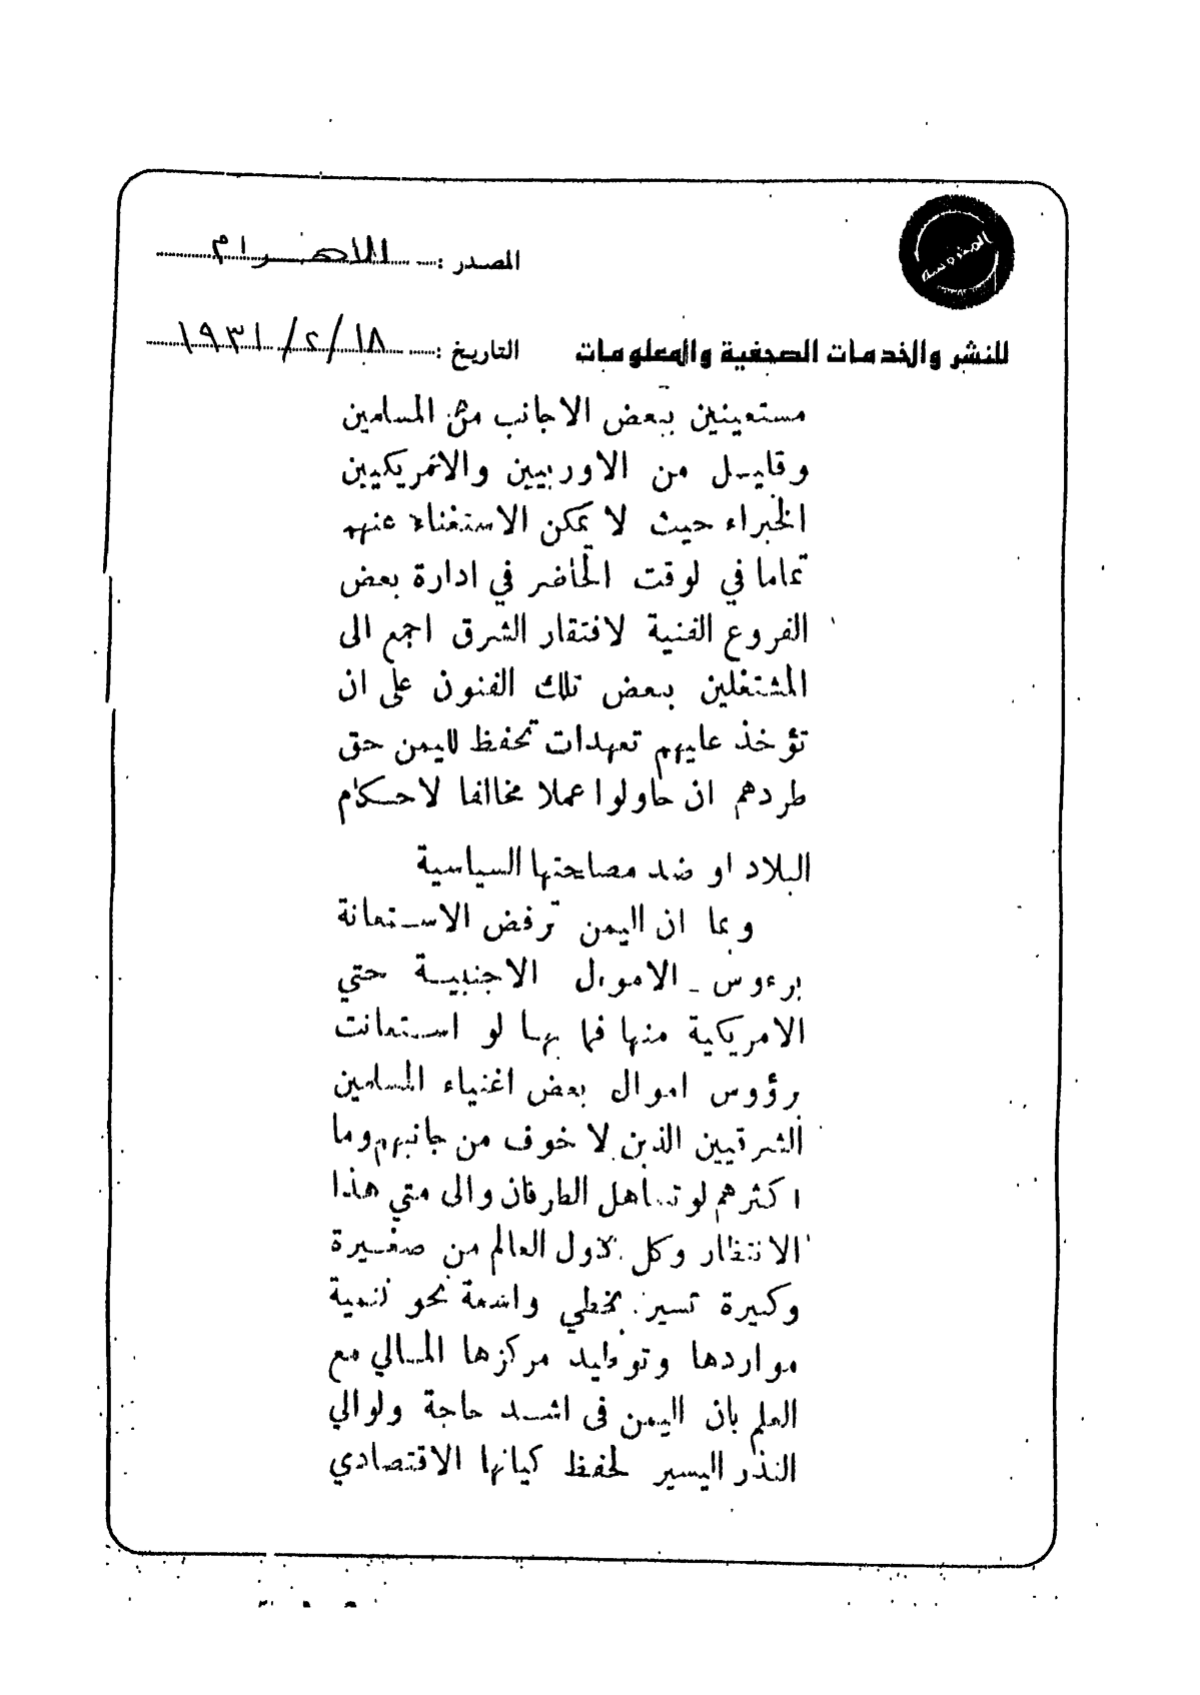 المحروسة
المصدر : الاهرام
للنشر والخدمات الصحفية والمعلومات
التاريخ : ١٨/٢/١٩٣١
مستعينين ببعض الاجانب من المسلمين
وقليل من الاوربيين والامريكيين
الخبراء حيث لا يمكن الاستغناء عنهم
تماما في لوقت الحاضر في ادارة بعض
الفروع الفنية لافتقار الشرق اجمع الى
المشتغلين ببعض تلك الفنون على ان
تؤخذ عليهم تعهدات تحفظ لليمن حق
طردهم ان حاولوا عملا مخالفا لاحكام
البلاد او ضد مصلحتها السياسية
وبما ان اليمن ترفض الاستعانة
برءوس الاموال الاجنبية حتي
الامريكية منها فما بها لو استعانت
برؤوس اموال بعض اغنياء المسلمين
الشرقيين الذين لا خوف من جانبهم وما
اكثرهم لو تساهل الطرفان والى متي هذا
الانتظار وكل دول العالم من صغيرة
وكبيرة تسير بخطي واسعة نحو تنمية
مواردها وتوطيد مركزها المالي مع
العلم بان اليمن فى اشد حاجة ولوالي
النذر اليسير لحفظ كيانها الاقتصادي